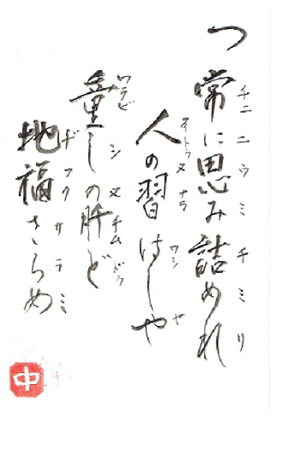 つ常に思み詰めれ
チニニウミチミリ
人の習はしや
ナラワシヤ
童しの肝ど
ワラビシヌチムドゥ
地福さらめ
ヂフクサラミ
中